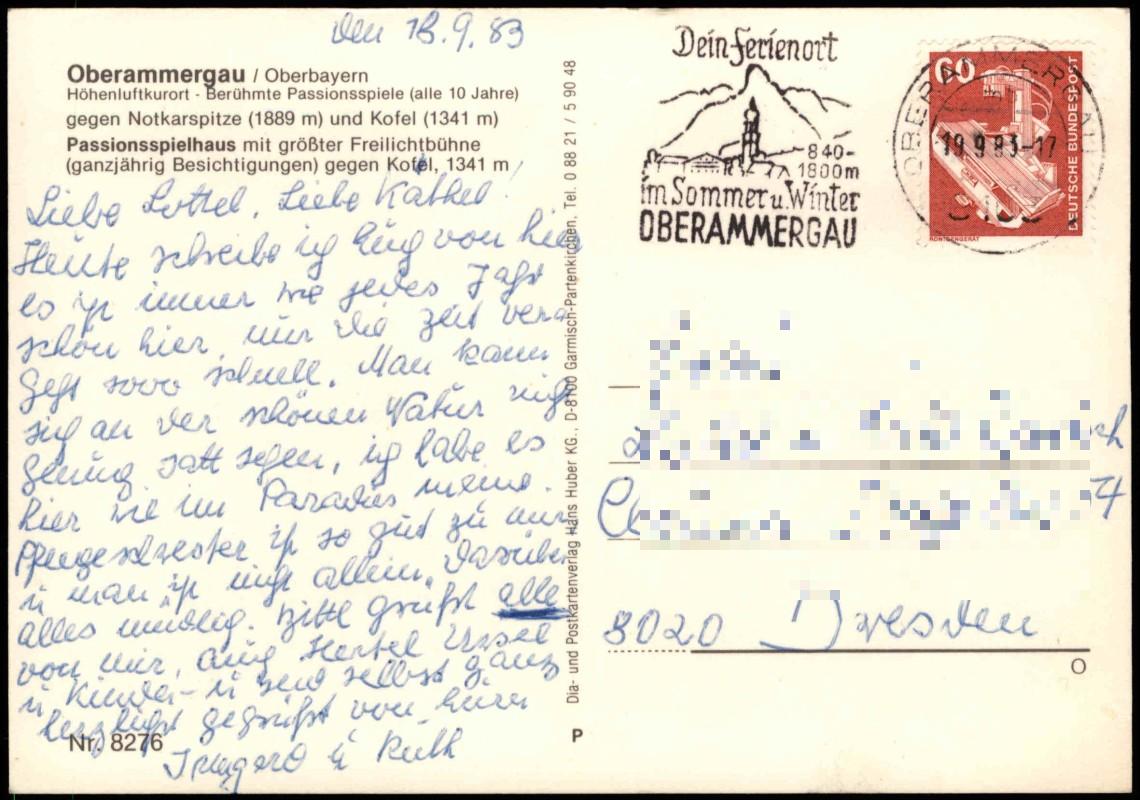 den 18.9.83
Oberammergau / Oberbayern
Höhenluftkurort - Berühmte Passionsspiele (alle 10 Jahre)
gegen Notkarspitze (1889 m) und Kofel (1341 m)
Passionsspielhaus mit größter Freilichtbühne
(ganzjährig Besichtigungen) gegen Kofel, 1341 m
Liebe Lottel, Liebe Käthel!
Heute schreibe ich Euch von hier
es ist immer wie jedes Jahr
schön hier, nur die Zeit ver
geht sooo schnell. Man kann
sich an der schönen Natur nicht
genug satt sehen, ich habe es
hier wie im Paradies meine
Pflegeschwester ist so gut zu mir
u man ist nicht allein. Darüber
alles mündlich. Bitte grüßt alle
von mir, auch Hertel Ursel
u Kinder u seid selbst ganz
herzlichst gegrüßt von Euren
Irmgard u Ruth
Nr. 8276
Dia- und Postkartenverlag Hans Huber KG., D-8100 Garmisch-Partenkirchen, Tel. 0 88 21 / 5 90 48
P
Dein Ferienort
840-
1800m
im Sommer u. Winter
OBERAMMERGAU
OBERAMMERGAU
19.9.83-17
60
DEUTSCHE BUNDESPOST
RÖNTGENGERÄT
8020 Dresden